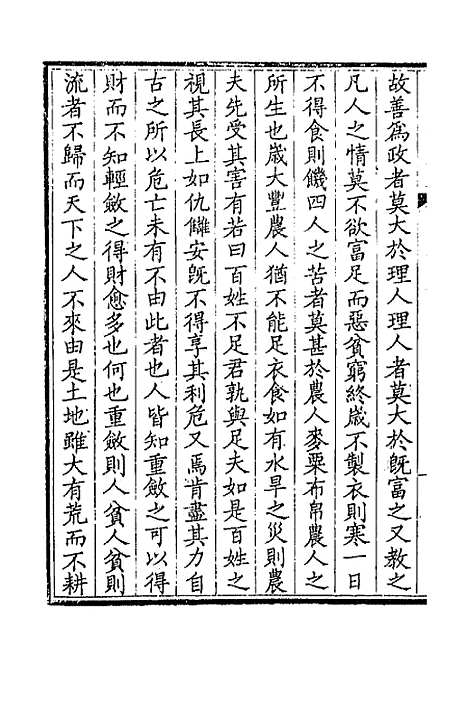 故善爲政者莫大於理人理人者莫大於既富之又教之
凡人之情莫不欲富足而惡貧窮終歲不製衣則寒一日
不得食則饑四人之苦者莫甚於農人麥粟布帛農人之
所生也歲大豐農人猶不能足衣食如有水旱之災則農
夫先受其害有若曰百姓不足君孰與足夫如是百姓之
視其長上如仇讎安既不得享其利危又焉肯盡其力自
古之所以危亡未有不由此者也人皆知重斂之可以得
財而不知輕斂之得財愈多也何也重斂則人貧人貧則
流者不歸而天下之人不來由是土地雖大有荒而不耕